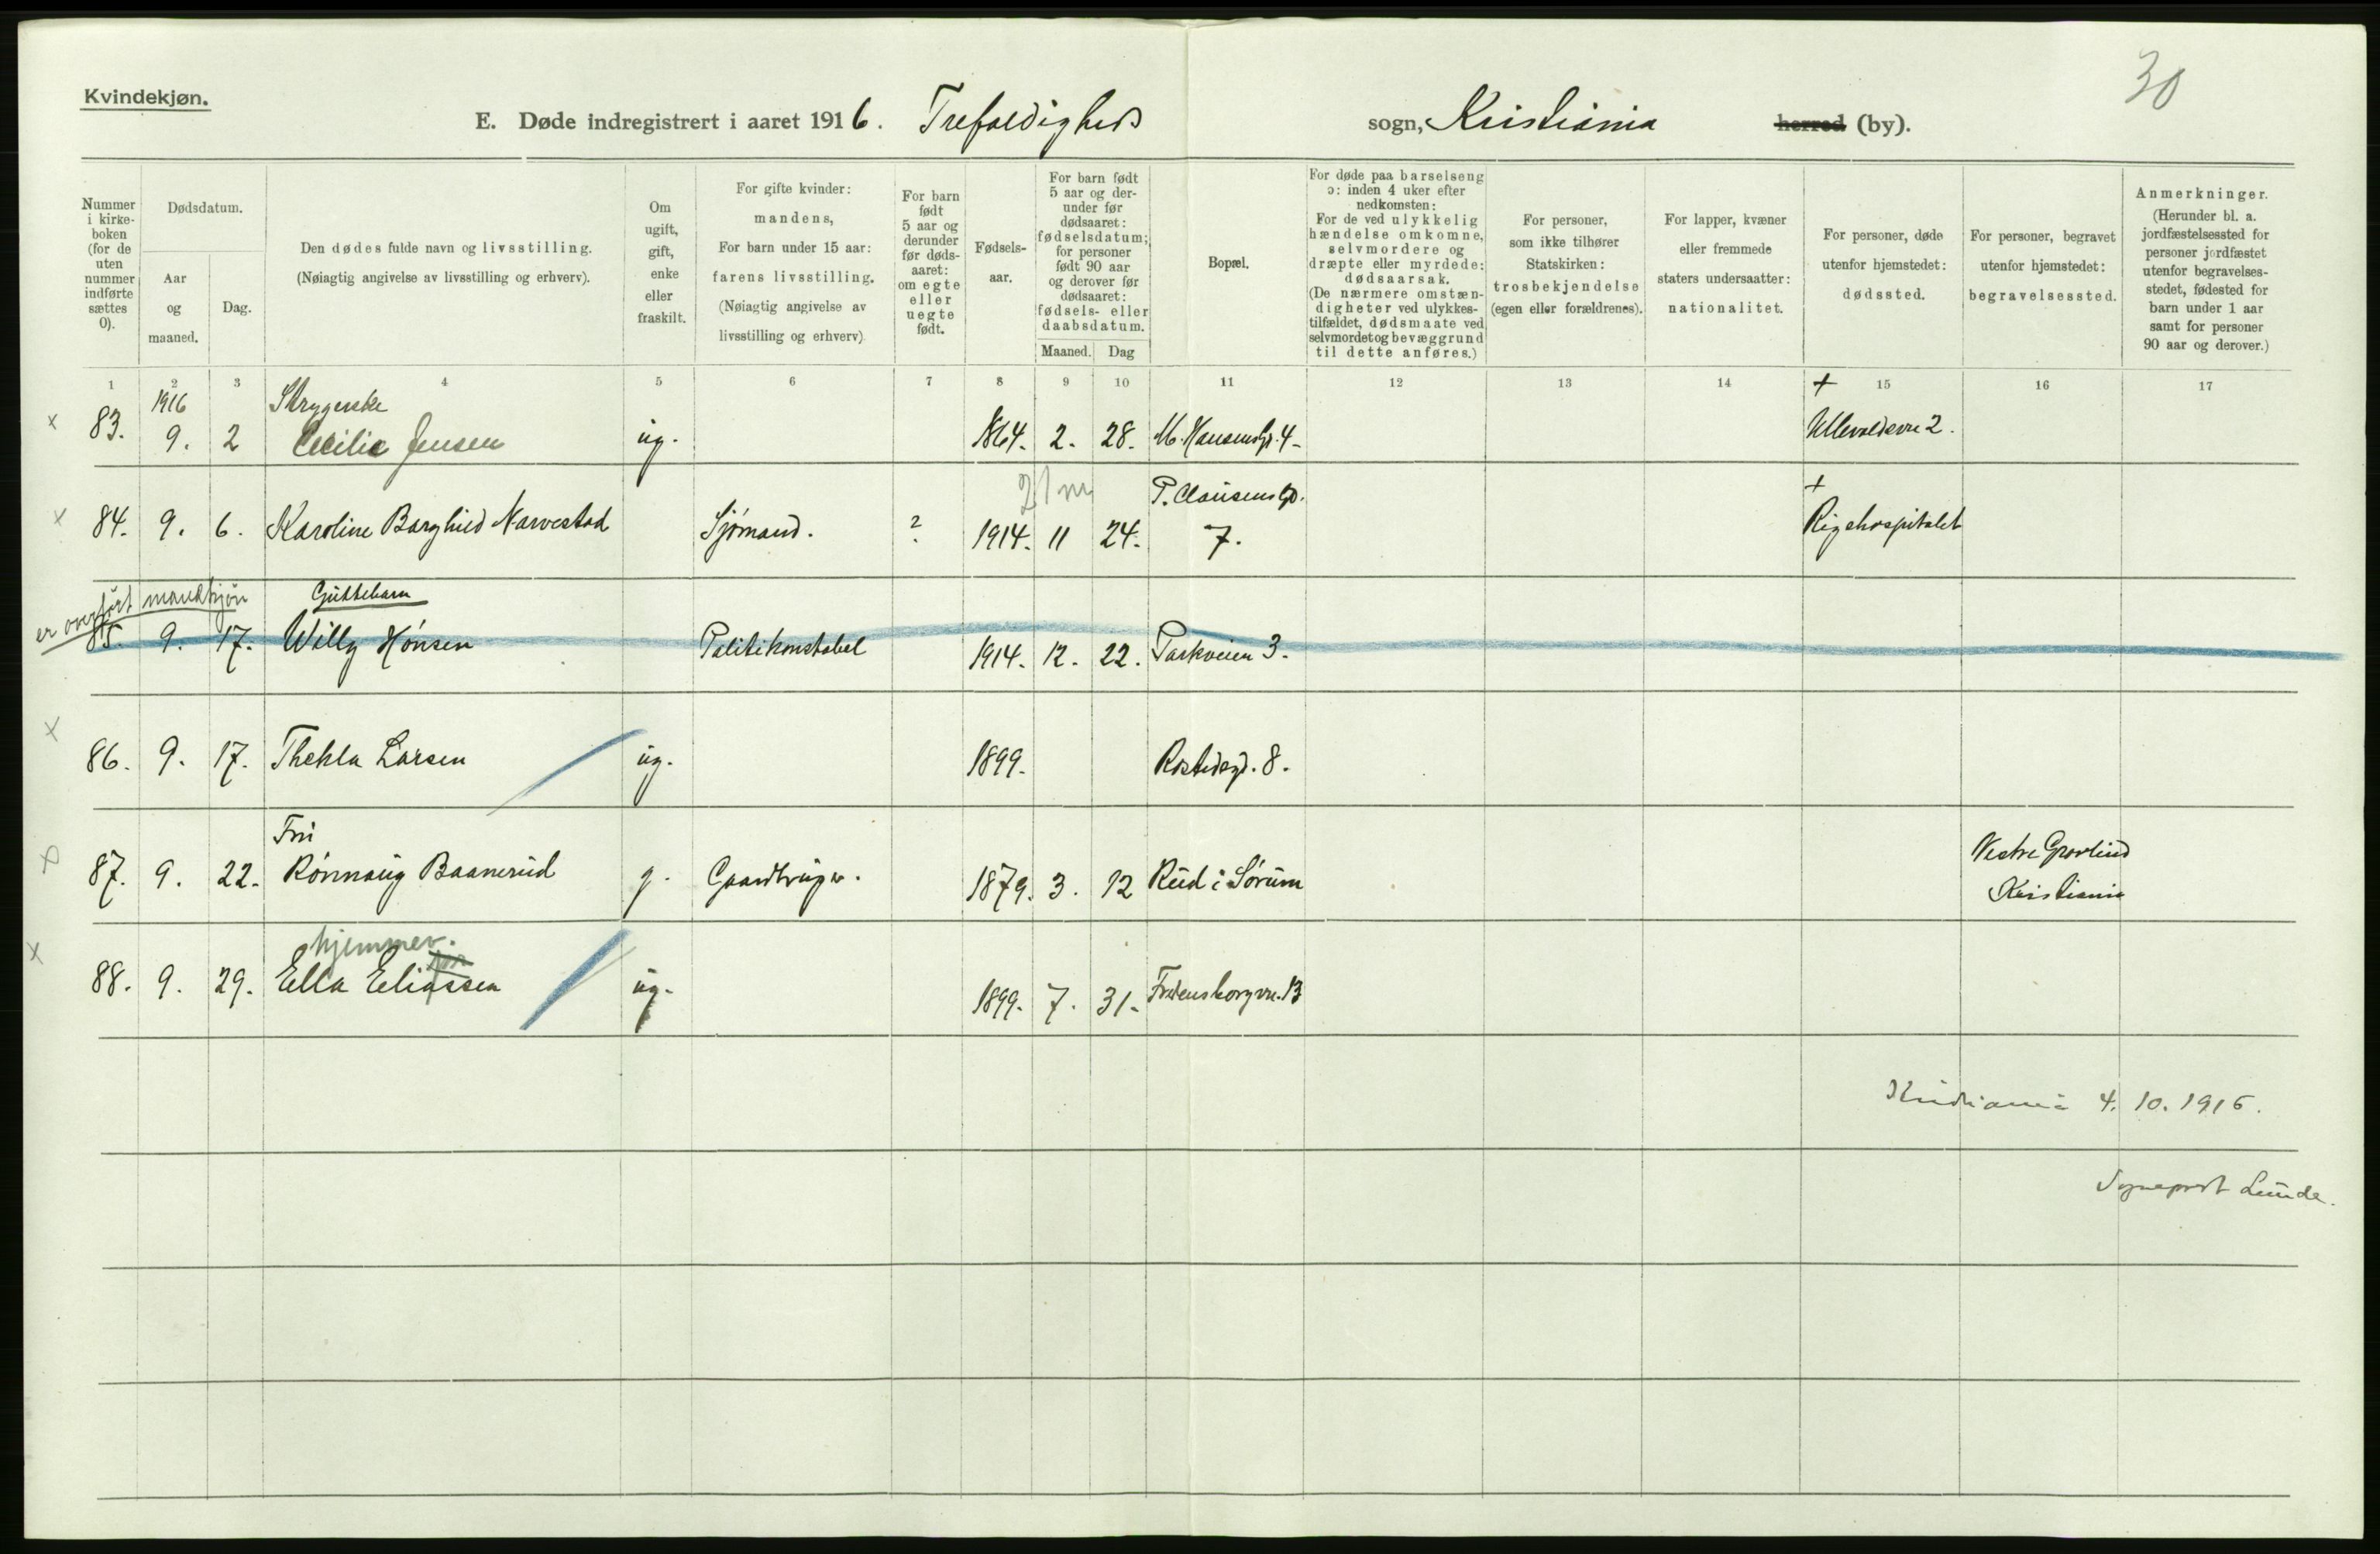 30
Kvindekjøn.
E. Døde indregistrert i aaret 1916. Trefoldigheds sogn, Kristiania herred (by).
Nummer i kirke-boken (for de uten nummer indførte sættes 0).
Dødsdatum.
Aar og maaned.
Dag.
Den dødes fulde navn og livsstilling.
(Nøiagtig angivelse av livsstilling og erhverv).
Om ugift, gift, enke eller fraskilt.
For gifte kvinder: mandens,
For barn under 15 aar: farens livsstilling.
(Nøiagtig angivelse av livsstilling og erhverv)
For barn født 5 aar og derunder før døds-aaret: om egte eller uegte født.
Fødsels-aar.
For barn født 5 aar og der-under før dødsaaret: fødselsdatum; for personer født 90 aar og derover før dødsaaret: fødsels- eller daabsdatum.
Maaned.
Dag
Bopæl.
For døde paa barselseng ɔ: inden 4 uker efter nedkomsten:
For de ved ulykkelig hændelse omkomne, selvmordere og dræpte eller myrdede: dødsaarsak.
(De nærmere omstæn-digheter ved ulykkes-tilfældet, dødsmaate ved selvmordet og bevæggrund til dette anføres.)
For personer, som ikke tilhører Statskirken: trosbekjendelse (egen eller forældrenes).
For lapper, kvæner eller fremmede staters undersaatter: nationalitet.
For personer, døde utenfor hjemstedet: dødssted.
For personer, begravet utenfor hjemstedet: begravelsessted.
Anmerkninger.
(Herunder bl. a. jordfæstelsessted for personer jordfæstet utenfor begravelses-stedet, fødested for barn under 1 aar samt for personer 90 aar og derover.)
1 2 3 4 5 6 7 8 9 10 11 12 13 14 15 16 17
1916 Strygerske +
x 83. 9. 2 Cecilie Jensen ug. 1864. 2. 28. M. Hansensgt. 4- Ullevoldsvn 2.
21 m P. Clausens Gd. +
x 84. 9. 6. Karoline Borghild Narvestad Sjømand. ? 1914. 11 24. 7. Rigshospitalet
er overført mandkjøn Guttebarn
85. 9. 17. Willy Hónsen Politikonstabel 1914. 12. 22. Parkveien 3.
x 86. 9. 17. Thekla Larsen ug. 1899. Rostedsgd. 8.
Fru Vestre Gravlund
x 87. 9. 22. Rónnaug Baanerud g. Gaardbruger. 1879. 3. 12 Rud i Sórum Kristiania
hjemmev.
x 88. 9. 29. Ella Eliassen ug. 1899. 7. 31. Fredensborgvn. 13
Kristiania 4. 10. 1916.
Sogneprest Lunde.